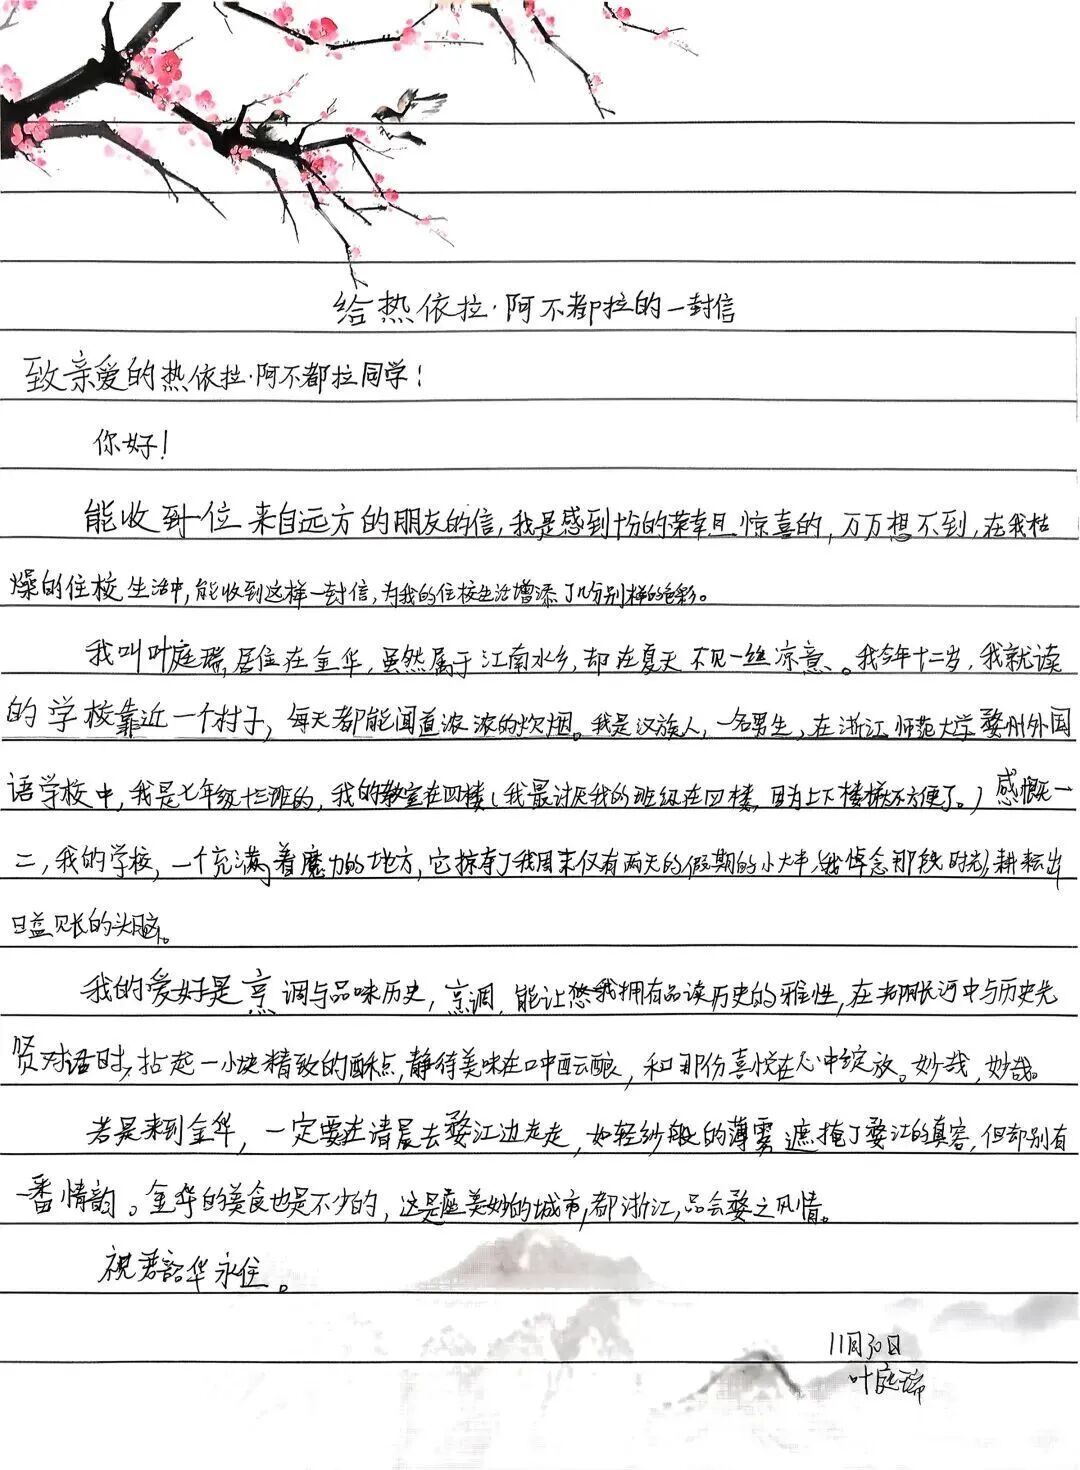 给热依拉·阿不都拉的一封信
致亲爱的热依拉·阿不都拉同学！
你好！
能收到一位来自远方的朋友的信，我是感到十分的荣幸且惊喜的，万万想不到，在我枯
燥的住校生活中，能收到这样一封信，为我的住校生活增添了几分别样的色彩。
我叫叶庭瑞，居住在金华，虽然属于江南水乡，却在夏天不见一丝凉意、。我今年十二岁，我就读
的学校靠近一个村子，每天都能闻道浓浓的炊烟。我是汉族人，一名男生，在浙江师范大学婺州外国
语学校中，我是七年级十三班的，我的教室在四楼（我最讨厌我的班级在四楼，因为上下楼梯太不方便了。）感慨一
二，我的学校，一个充满着魔力的地方，它掠夺了我周末仅有两天的假期的小大半（我悼念那段时光），耕耘出
日益见长的头脑。
我的爱好是烹调与品味历史，烹调，能让我拥有品读历史的雅性，在老阴长河中与历史先
贤对话时，拈起一小块精致的酥点，静待美味在口中酝酿，和那份喜悦在心中绽放。妙哉，妙哉。
若是来到金华，一定要在清晨去婺江边走走，如轻纱般的薄雾遮掩了婺江的真容，但却别有
一番情韵。金华的美食也是不少的，这是座美妙的城市，都浙江，品会婺之风情。
祝君韶华永住。
11月30日
叶庭瑞